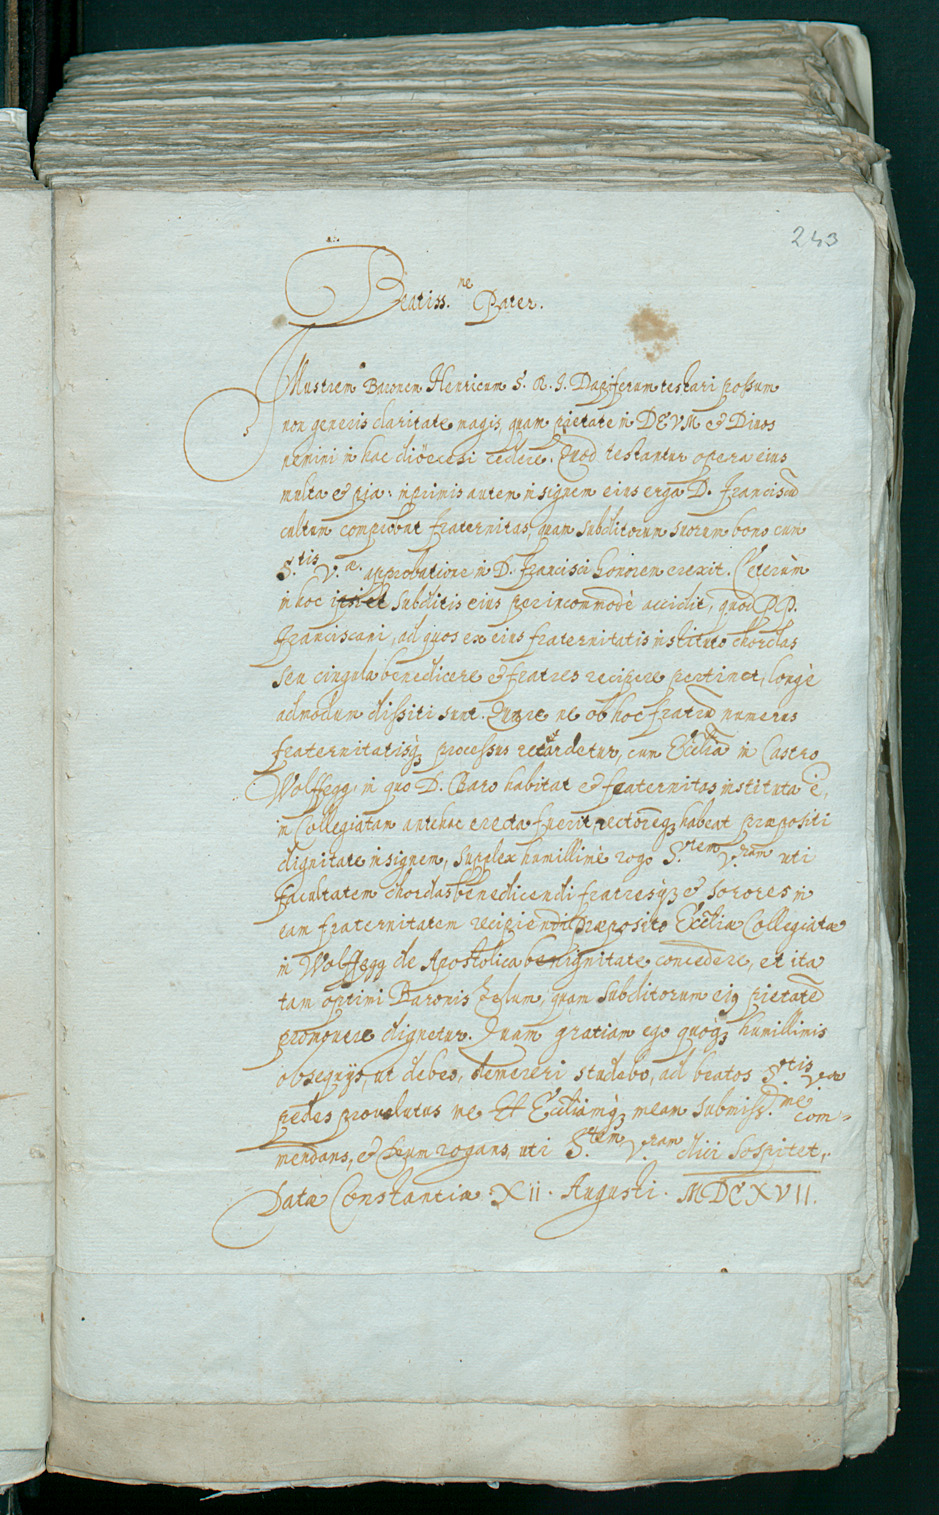 243
Beatiss.ne Pater.
Illustrem Baronem Henricum S. R. I. Dapiferum testari possum
non generis claritate magis, quam pietate in DEVM et Divos
nemini in hac dioecesi cedere. Quod testantur opera eius
multa et pia: inprimis autem insignem eius erga D. Franciscū
cultum comprobat fraternitas, quam subditorum suorum bono cum
S.tis V.æ approbatione in D. Francisci honorem erexit. Ceterùm
in hoc subditis eius perincommodè accidit, quod PP.
Franciscani, ad quos ex eius fraternitatis instituto chordas
seu cingula benedicere et fratres recipere pertinet, longè
admodum dissiti sunt. Quare ne ob hoc fratrū numerus
fraternitatisq3 processus retardetur, cum Ecclīa in Castro
Wolffegg, in quo D. Baro habitat et fraternitas instituta ē,
in Collegiatam antehac erecta fuerit, rectoremq3 habeat præpositi
dignitate insignem, supplex humillimè rogo S.tem V.ram uti
facultatem chordas benedicendi fratresq3 et sorores in
eam fraternitatem recipiendi Præposito Ecclīæ Collegiatæ
in Wolffegg de Apostolica benignitate concedere, et ita
tam optimi Baronis Zelum, quam subditorum ei9 pietatē
promovere dignetur. Quam gratiam ego quoq3 humillimis
obsequijs, ut debeo, demereri studebo, ad beatos S.tis V.ræ
pedes provolutus me et Ecclīamq3 meam submiss.me com-
mendans, et Deum rogans, uti S.tem V.ram diu sospitet.
Datæ Constantiæ XII. Augusti. MDCXVII.